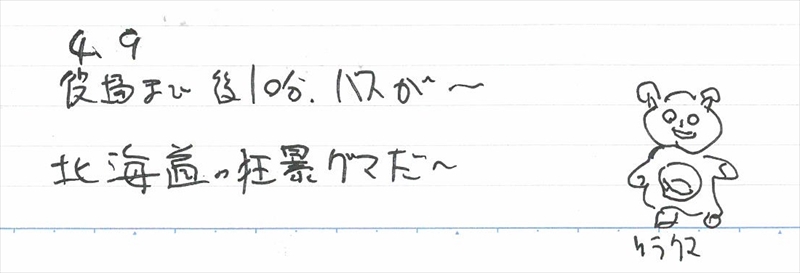 4、9
役場まで 後10分、バスが〜
北海道の狂暴グマだ〜
クラクマ